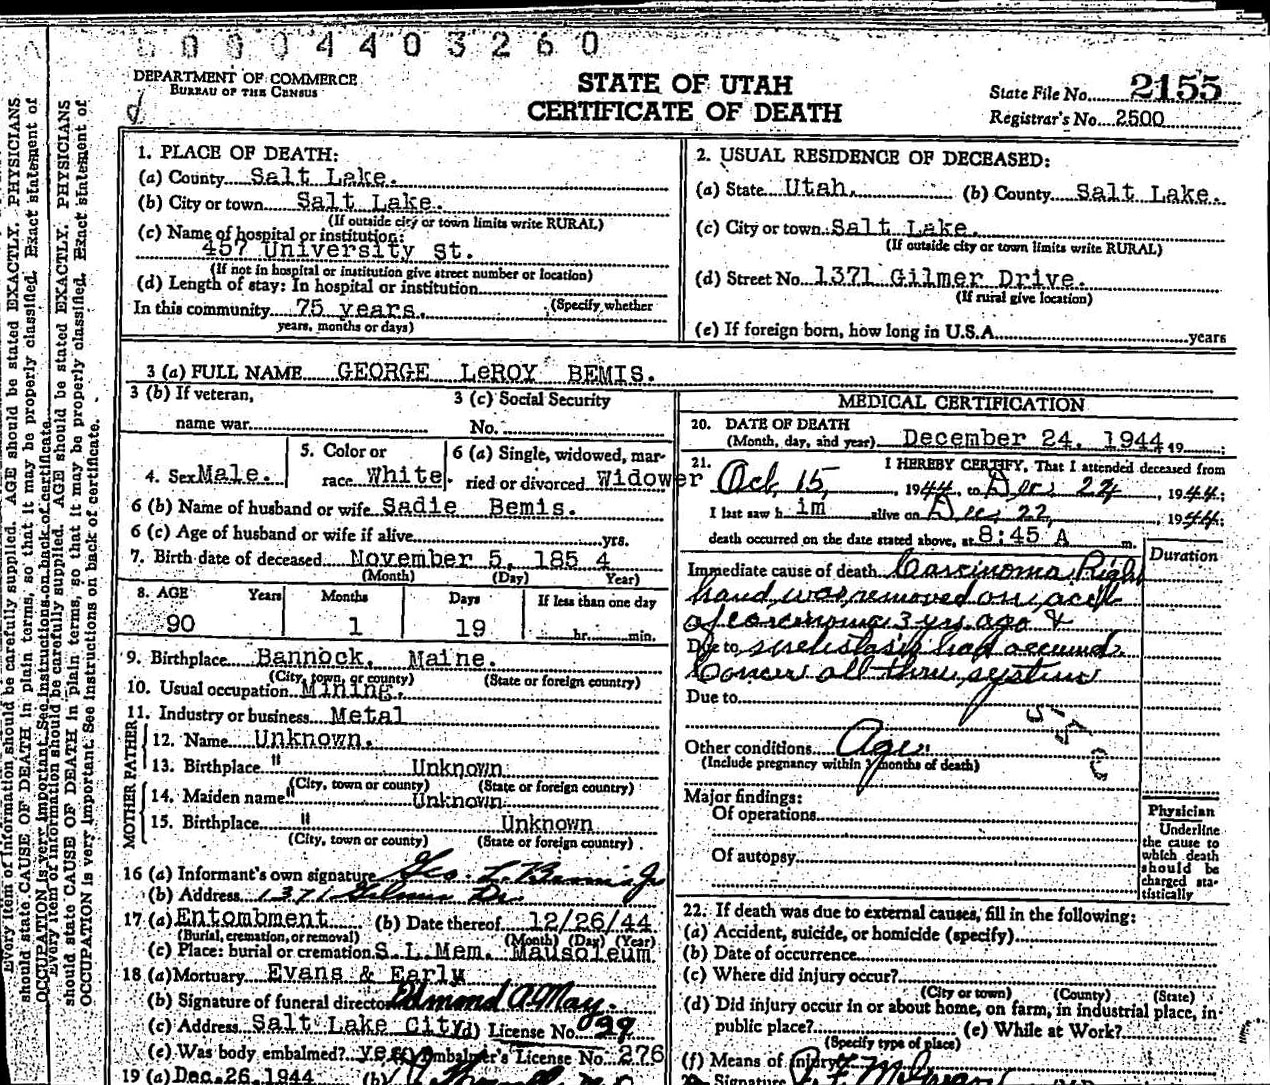 0 0 0 4 4 0 3 2 6 0
DEPARTMENT OF COMMERCE
BUREAU OF THE CENSUS
STATE OF UTAH
CERTIFICATE OF DEATH
State File No. 2155
Registrar's No. 2500
Every item of information should be carefully supplied. AGE should be stated EXACTLY. PHYSICIANS
should state CAUSE OF DEATH in plain terms, so that it may be properly classified. Exact statement of
OCCUPATION is very important. See instructions on back of certificate.
Every item of information should be carefully supplied. AGE should be stated EXACTLY. PHYSICIANS
should state CAUSE OF DEATH in plain terms, so that it may be properly classified. Exact statement of
OCCUPATION is very important. See instructions on back of certificate.
1. PLACE OF DEATH:
(a) County Salt Lake.
(b) City or town Salt Lake.
(If outside city or town limits write RURAL)
(c) Name of hospital or institution:
457 University St.
(If not in hospital or institution give street number or location)
(d) Length of stay: In hospital or institution
(Specify whether
In this community 75 years.
years, months or days)
2. USUAL RESIDENCE OF DECEASED:
(a) State Utah. (b) County Salt Lake.
(c) City or town Salt Lake.
(If outside city or town limits write RURAL)
(d) Street No. 1371 Gilmer Drive.
(If rural give location)
(e) If foreign born, how long in U.S.A. years
3 (a) FULL NAME GEORGE LeROY BEMIS.
3 (b) If veteran,
name war
3 (c) Social Security
No.
4. Sex Male.
5. Color or
race White
6 (a) Single, widowed, mar-
ried or divorced Widower
6 (b) Name of husband or wife Sadie Bemis.
6 (c) Age of husband or wife if alive yrs.
7. Birth date of deceased November 5, 185 4
(Month) (Day) Year)
8. AGE Years Months Days If less than one day
90 1 19 hr. min.
9. Birthplace Bannock, Maine.
(City, town, or county) (State or foreign country)
10. Usual occupation Mining.
11. Industry or business Metal
FATHER
12. Name Unknown.
13. Birthplace " Unknown
(City, town or county) (State or foreign country)
MOTHER
14. Maiden name " Unknown
15. Birthplace " Unknown
(City, town or county) (State or foreign country)
16 (a) Informant's own signature Geo. L. Bemis Jr
(b) Address 1371 Gilmer Dr.
17 (a) Entombment (b) Date thereof 12/26/44
(Burial, cremation, or removal) (Month) (Day) (Year)
(c) Place: burial or cremation S.L. Mem. Mausoleum
18 (a) Mortuary Evans & Early
(b) Signature of funeral director Edmond A. May.
(c) Address Salt Lake City (d) License No. 29
(e) Was body embalmed? yes (f) Embalmer's License No. 276
19 (a) Dec. 26, 1944 (b)
MEDICAL CERTIFICATION
20. DATE OF DEATH
(Month, day, and year) December 24, 1944, 19 ;
21. I HEREBY CERTIFY, That I attended deceased from
Oct. 15, , 1944, to Dec. 24 , 1944;
I last saw h im alive on Dec. 22, , 1944;
death occurred on the date stated above, at 8:45 A m.
Duration
Immediate cause of death Carcinoma Right
hand was removed on acct
of carcinoma 3 yrs. ago &
Due to had occurred.
Cancer all thru system
Due to
Other conditions Age.
(Include pregnancy within 3 months of death)
Major findings:
Of operations
Of autopsy
Physician
Underline
the cause to
which death
should be
charged sta-
tistically
22. If death was due to external causes, fill in the following:
(a) Accident, suicide, or homicide (specify)
(b) Date of occurrence
(c) Where did injury occur?
(City or town) (County) (State)
(d) Did injury occur in or about home, on farm, in industrial place, in
public place? (e) While at Work?
(Specify type of place)
(f) Means of injury
Signature